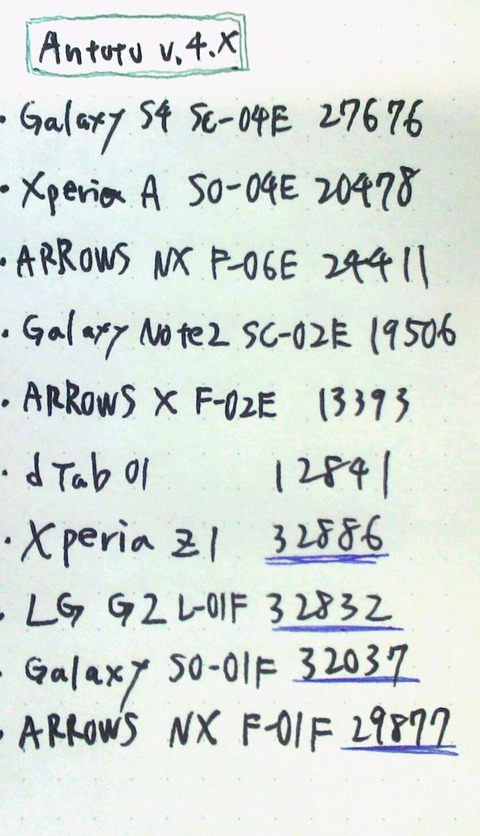 Antutu v.4.X
・Galaxy S4 SC-04E 27676
・Xperia A SO-04E 20478
・ARROWS NX F-06E 24411
・Galaxy Note2 SC-02E 19506
・ARROWS X F-02E 13393
・dTab 01 12841
・Xperia Z1 32886
・LG G2 L-01F 32832
・Galaxy SO-01F 32037
・ARROWS NX F-01F 29877